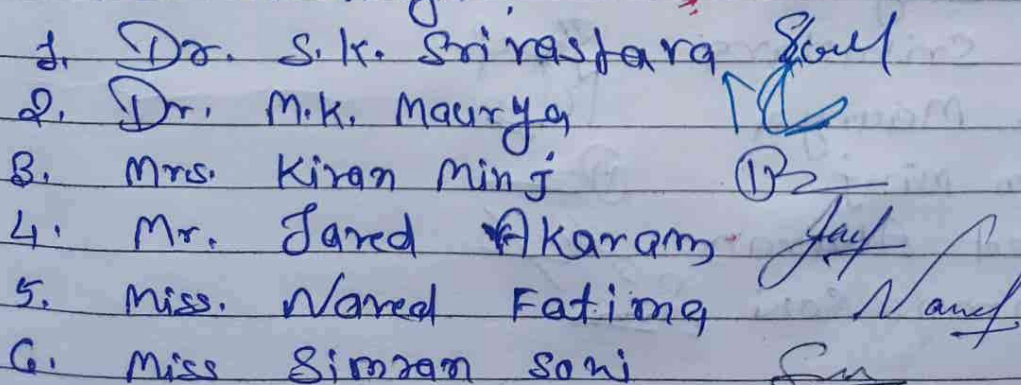 1. Dr. S.K. Srivastava
2. Dr. M.K. Maurya
3. Mrs. Kiran Minj
4. Mr. Javed Akaram
5. Miss. Naved Fatima
6. Miss Simran Soni